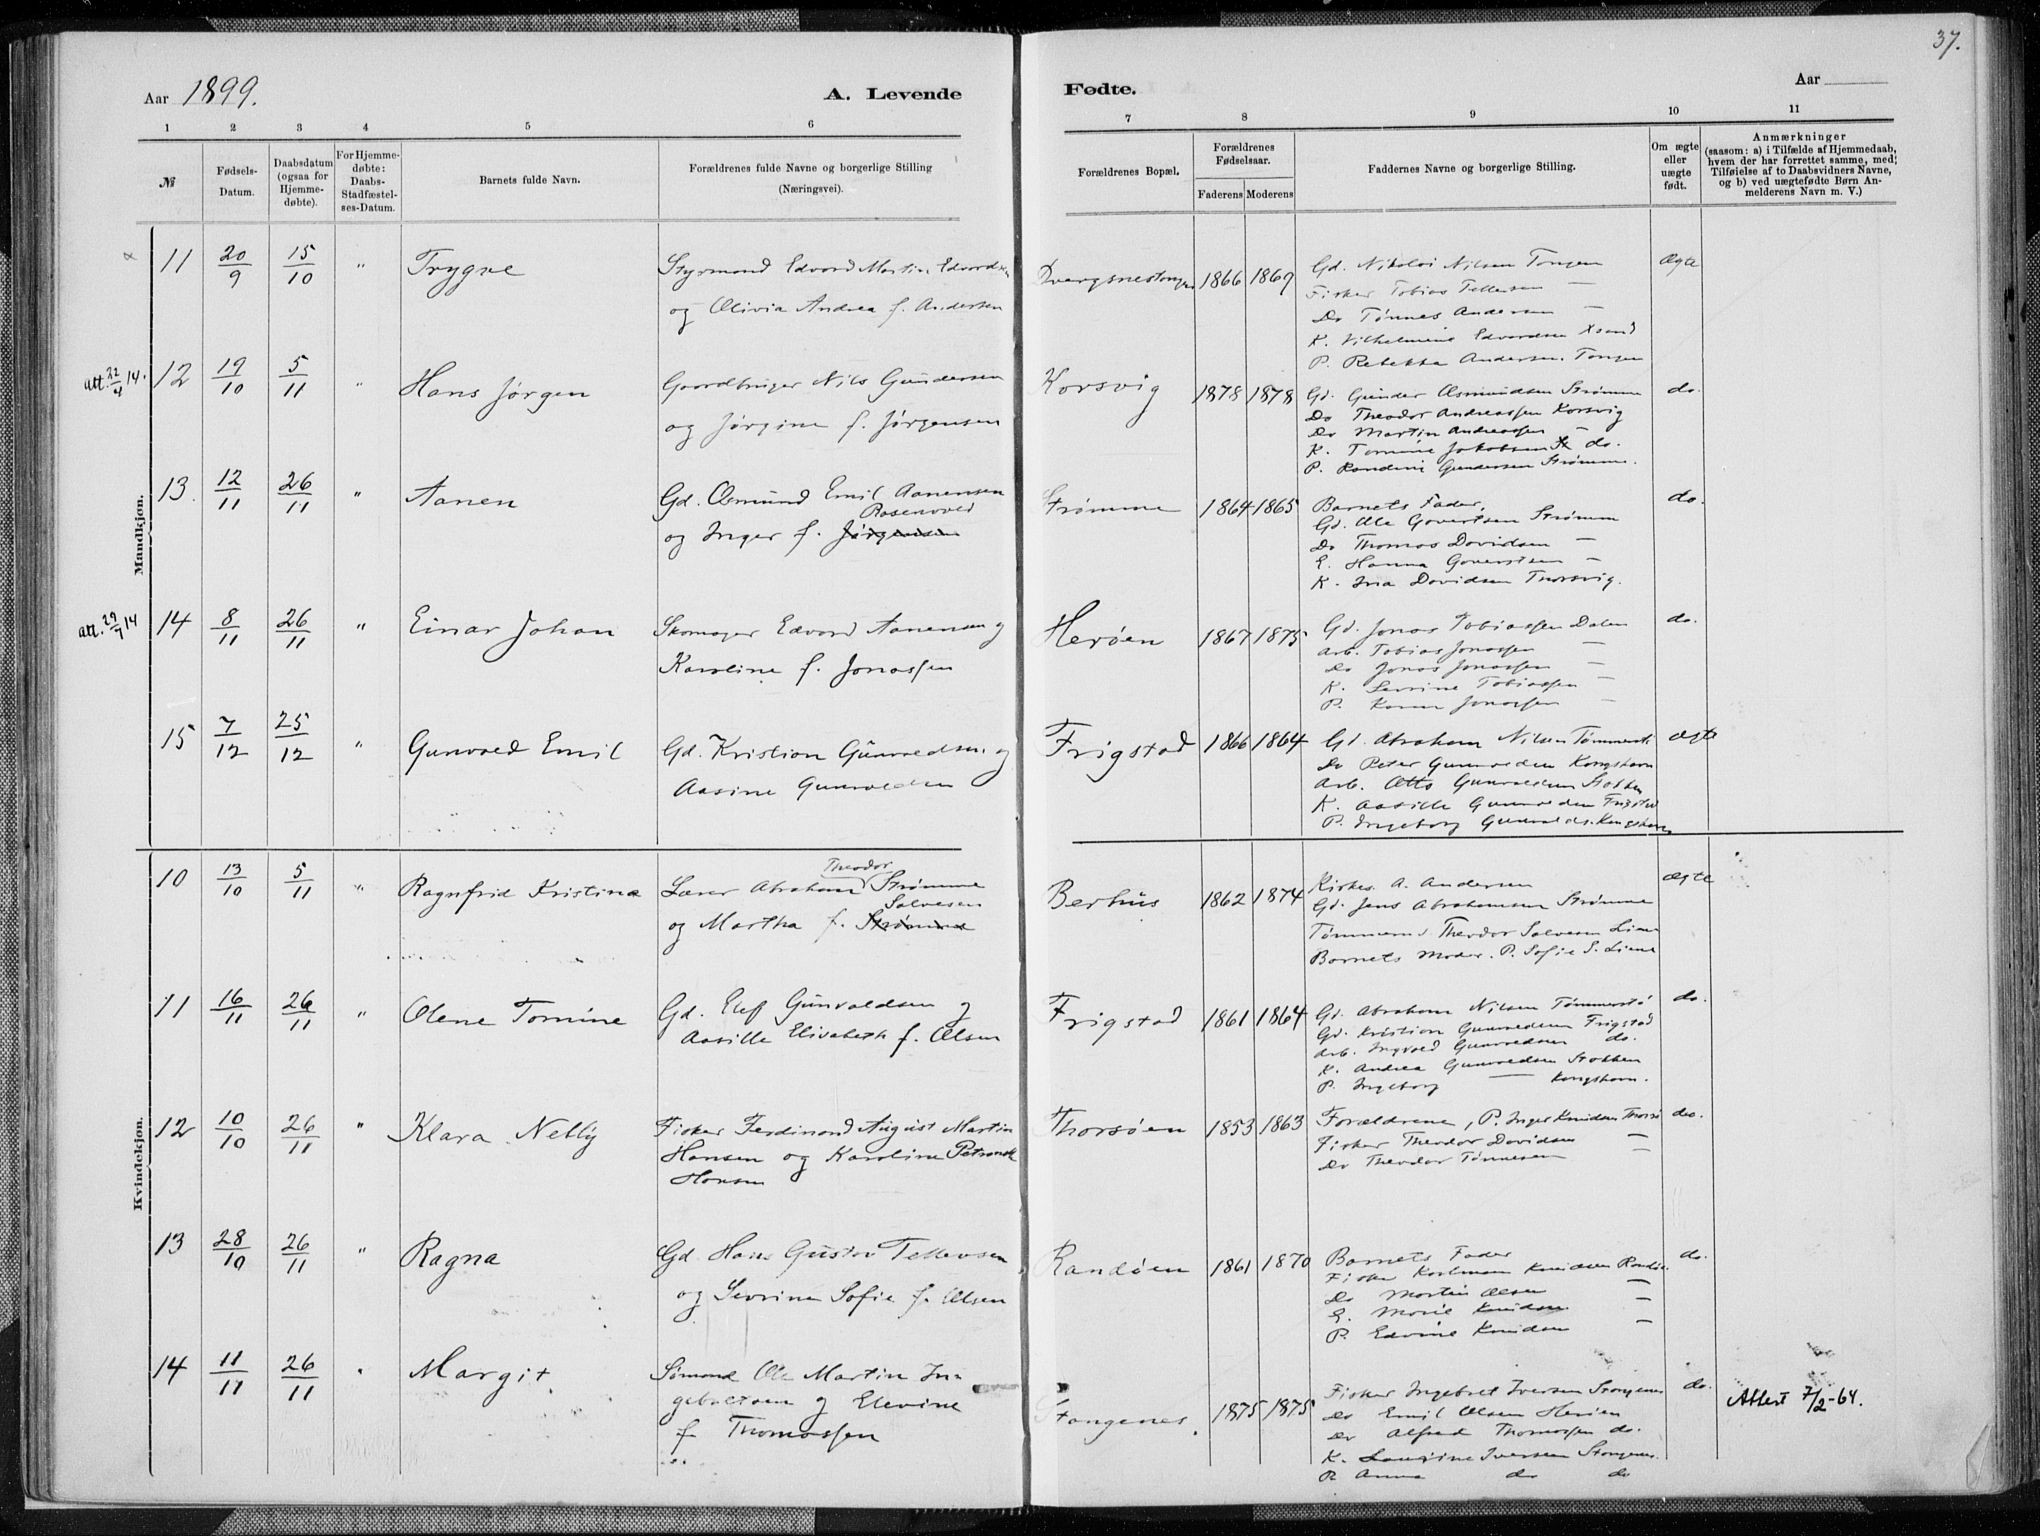 37.
Aar 1899.
A. Levende
Fødte.
Aar
1 2 3 4 5 6
7 8 9 10 11
№
Fødsels-
Datum.
Daabsdatum
(ogsaa for
Hjemme-
døbte).
For Hjemme-
døbte:
Daabs-
Stadfæstel-
ses-Datum.
Barnets fulde Navn.
Forældrenes fulde Navne og borgerlige Stilling
(Næringsvei).
Forældrenes Bopæl.
Forældrenes
Fødselsaar.
Faderens Moderens
Faddernes Navne og borgerlige Stilling.
Om ægte
eller
uægte
født.
Anmærkninger
(saasom: a) i Tilfælde af Hjemmedaab,
hvem der har forrettet samme, med
Tilføielse af to Daabsvidners Navne,
og b) ved uægtefødte Børn An-
melderens Navn m. V.)
Mandkjøn.
11 20/9 15/10 " Trygve
Styrmand Edvard Martin Edvardsen
og Olivia Andrea f. Andersen
Dvergsnestangen 1866 1869
Gd. Nikolai Nilsen Tangen
Fisker Tobias Tellefsen —
Do Tønnes Andersen —
K. Vilhelmine Edvardsen Xsand
P. Rebekka Andersen. Tangen
Ægte
att. 22/4 14.
12 19/10 5/11 " Hans Jørgen
Gaardbruger Nils Gundersen
og Jørgine f. Jørgensen
Korsvig 1878 1878
Gd. Gunder Asmundsen Strømme
Do Theodor Andreassen Korsvig
Do Martin Andreassen —
K. Tomine Jakobsen do.
P. Randine Gundersen Strømme.
do.
13. 12/11 26/11 " Aanen
Gd. Osmund Emil Aanensen
Rosenvold
og Inger f. Jørgensen
Strømme 1864 1865
Barnets Fader,
Gd. Ole Govertsen Strømm
Do Thomas Davidsen —
E. Hanna Govertsen —
K. Ina Davidsen Thorsvig.
do.
att. 29/7 14
14 8/11 26/11 " Einar Johan
Skomager Edvard Aanensen og
Karoline f. Jonassen
Herøen 1867 1875
Gd. Jonas Tobiassen Dalen
Arb. Tobias Jonassen —
Do Jonas Jonassen —
K. Serine Tobiassen —
P. Karen Jonassen —
do.
15 7/12 25/12 " Gunvald Emil
Gd. Kristian Gunvaldsen og
Aasine Gunvaldsen
Frigstad 1866 1864
Gd. Abraham Nilsen Tømmerst
Do Peter Gunvaldsen Kongshavn
Arb. Otto Gunvaldsen Stokken
K. Aasille Gunvaldsen Frigstad
P. Ingeborg Gunvalds. Kongshavn
ægte
Kvindekjøn.
10 13/10 5/11 " Ragnfrid Kristine
Theodor
Lærer Abraham Strømme
Salvesen
og Martha f. Strømme
Berhus 1862 1874
Kirkes. A. Andersen
Gd. Jens Abrahamsen Strømme
Tømmerm. Theodor Salvesen Liene
Barnets Moder. P. Sofie S. Liene
ægte
11 16/11 26/11 " Olene Tomine
Gd. Elef Gunvaldsen og
Aasille Elisabeth f. Olsen
Frigstad 1861 1864
Gd. Abraham Nilsen Tømmerstø
Gd. Kristian Gunvaldsen Frigstad
Arb. Ingvald Gunvaldsen do.
K. Andrea Gunvaldsen Stokken
P. Ingeborg — Kongshavn.
do.
12 10/10 26/11 " Klara Nelly
Fisker Ferdinand August Martin
Hansen og Karoline Petronelle
Hansen
Thorsøen 1853 1863
Forældrene, P. Inger Knudsen Thorsø
Fisker Theodor Davidsen —
Do Theodor Tønnesen —
do.
13 28/10 26/11 " Ragna
Gd. Hans Gustav Tellevsen
og Sevrine Sofie f. Olsen
Randøen 1861 1870
Barnets Fader
Fisker Karlman Knudsen Randø.
Do Martin Olsen —
E. Marie Knudsen —
P. Edvine Knudsen —
do.
14 11/11 26/11 " Margit.
Sømand Ole Martin In-
gebretsen og Elevine
f. Thomassen
Stangenes. 1875 1875
Fisker Ingebret Iversen Stangenes
Do Emil Olsen Herøen
Do Alfred Thomassen do.
K. Laurine Iversen Stangenes.
P. Anna do do
do.
Attest 7/2-64.